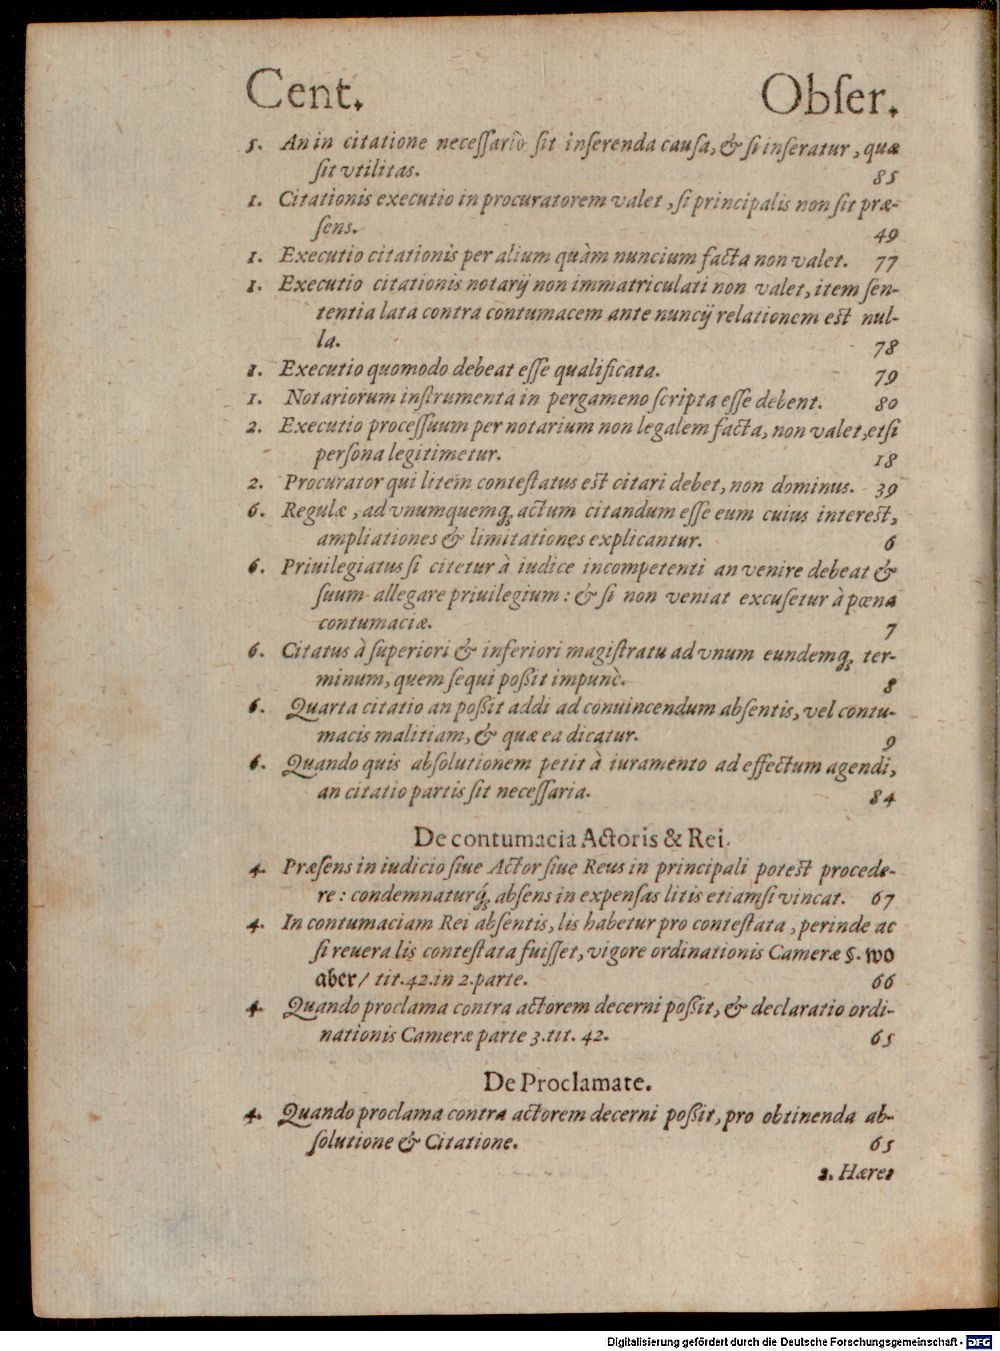 Cent. Obser.
5. An in citatione necessariò sit inserenda causa, & si inseratur, quæ
sit vtilitas. 85
1. Citationis executio in procuratorem valet, si principalis non sit præ-
sens. 49
1. Executio citationis per alium quàm nuncium facta non valet. 77
1. Executio citationis notarij non immatriculati non valet, item sen-
tentia lata contra contumacem ante nuncij relationem est nul-
la. 78
1. Executio quomodo debeat esse qualificata. 79
1. Notariorum instrumenta in pergameno scripta esse debent. 80
2. Executio processuum per notarium non legalem facta, non valet, etsi
persona legitimetur. 18
2. Procurator qui litem contestatus est citari debet, non dominus. 39
6. Regulæ, ad vnumquemq; actum citandum esse eum cuius interest,
ampliationes & limitationes explicantur. 6
6. Priuilegiatus si citetur à iudice incompetenti an venire debeat &
suum allegare priuilegium: & si non veniat excusetur à pœna
contumaciæ. 7
6. Citatus à superiori & inferiori magistratu ad vnum eundemq; ter-
minum, quem sequi poßit impunè. 8
6. Quarta citatio an poßit addi ad conuincendum absentis, vel contu-
macis malitiam, & quæ ea dicatur. 9
6. Quando quis absolutionem petit à iuramento ad effectum agendi,
an citatio partis sit necessaria. 84
De contumacia Actoris & Rei.
4. Præsens in iudicio siue Actor siue Reus in principali potest procede-
re: condemnaturq́; absens in expensas litis etiamsi vincat. 67
4. In contumaciam Rei absentis, lis habetur pro contestata, perinde ac
si reuera lis contestata fuisset, vigore ordinationis Cameræ §. wo
aber/ tit. 42. in 2. parte. 66
4. Quando proclama contra actorem decerni poßit, & declaratio ordi-
nationis Cameræ parte 3. tit. 42. 65
De Proclamate.
4. Quando proclama contra actorem decerni poßit, pro obtinenda ab-
solutione & Citatione. 65
2. Hæres
Digitalisierung gefördert durch die Deutsche Forschungsgemeinschaft - DFG